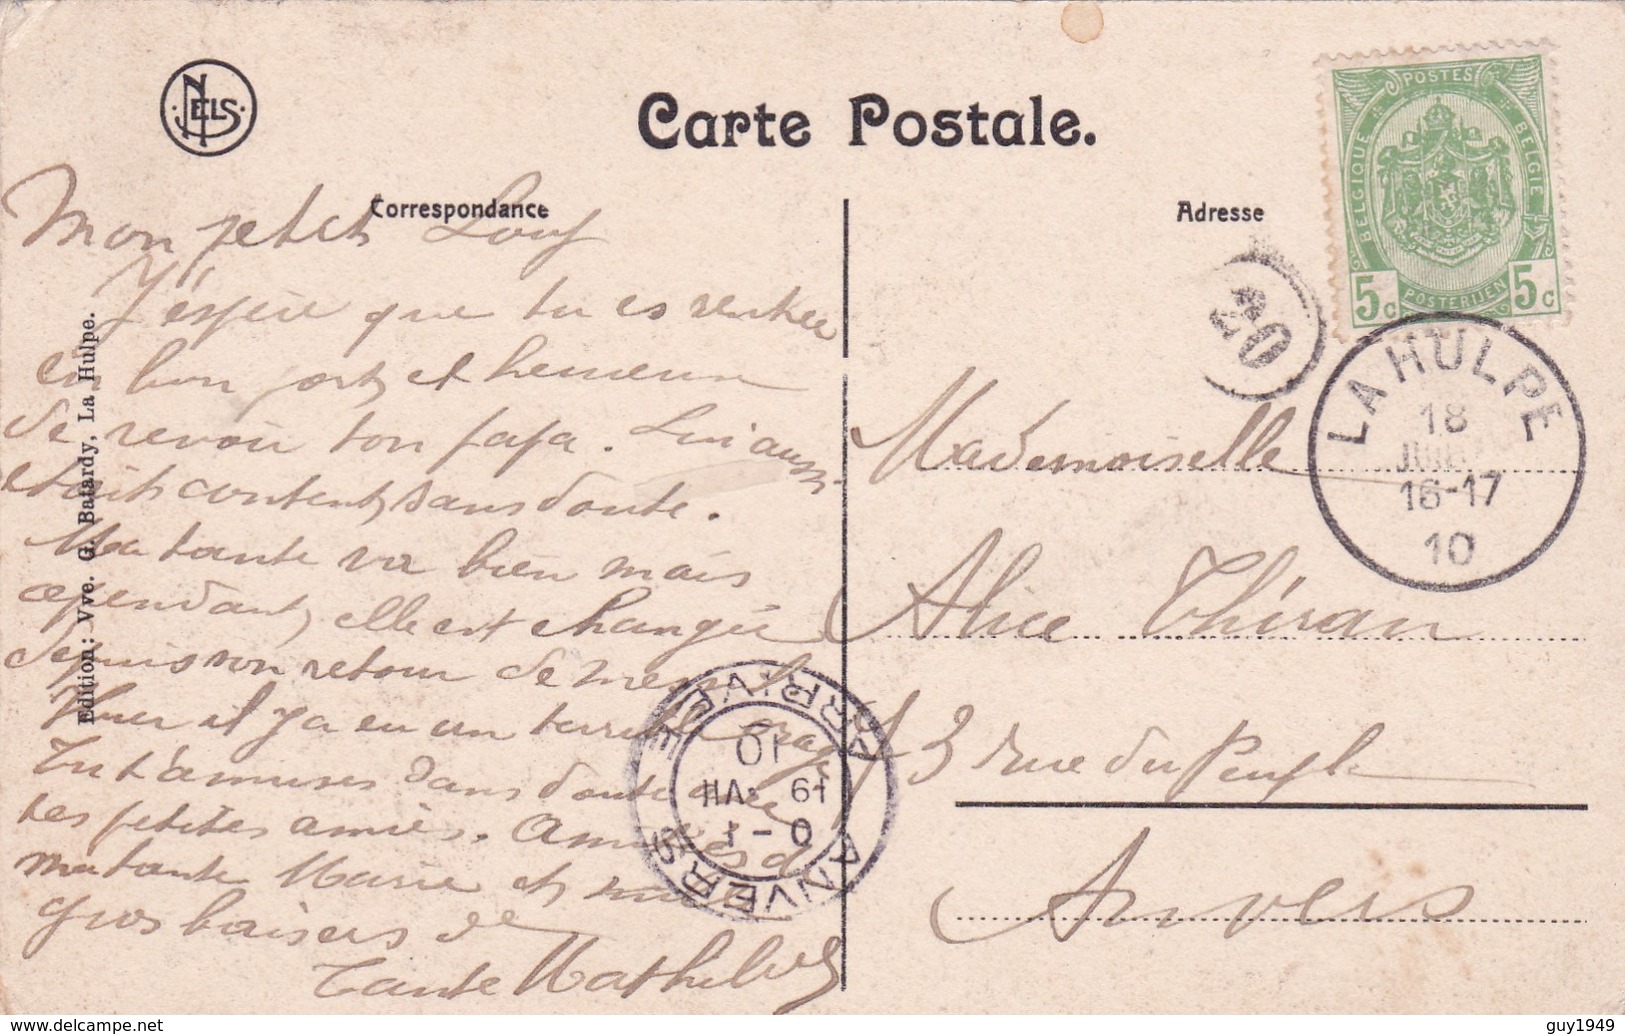 NELS
Carte Postale.
Correspondance
Adresse
POSTES
BELGIQUE
BELGIE
POSTERIJEN
5c 5c
20
LA HULPE
18
JUIL
16-17
10
Edition: Vve. G. Batardy, La Hulpe.
Mon petit
J'espère que tu es rentrée
en bon port et heureuse
de revoir ton papa. Lui aussi
était content, sans doute.
Ma tante va bien mais
cependant, elle est changée
depuis son retour de
Hier il y a eu un terrible orage
Tu t'amuses dans doute avec
tes petites amies. Amitiés de
ma tante Marie et mille
gros baisers de
Tante Mathilde
ANVERS
ARRIVÉE
10
19 VII
Mademoiselle
Alice Thiran
3 rue du Peuple
Anvers
guy1949